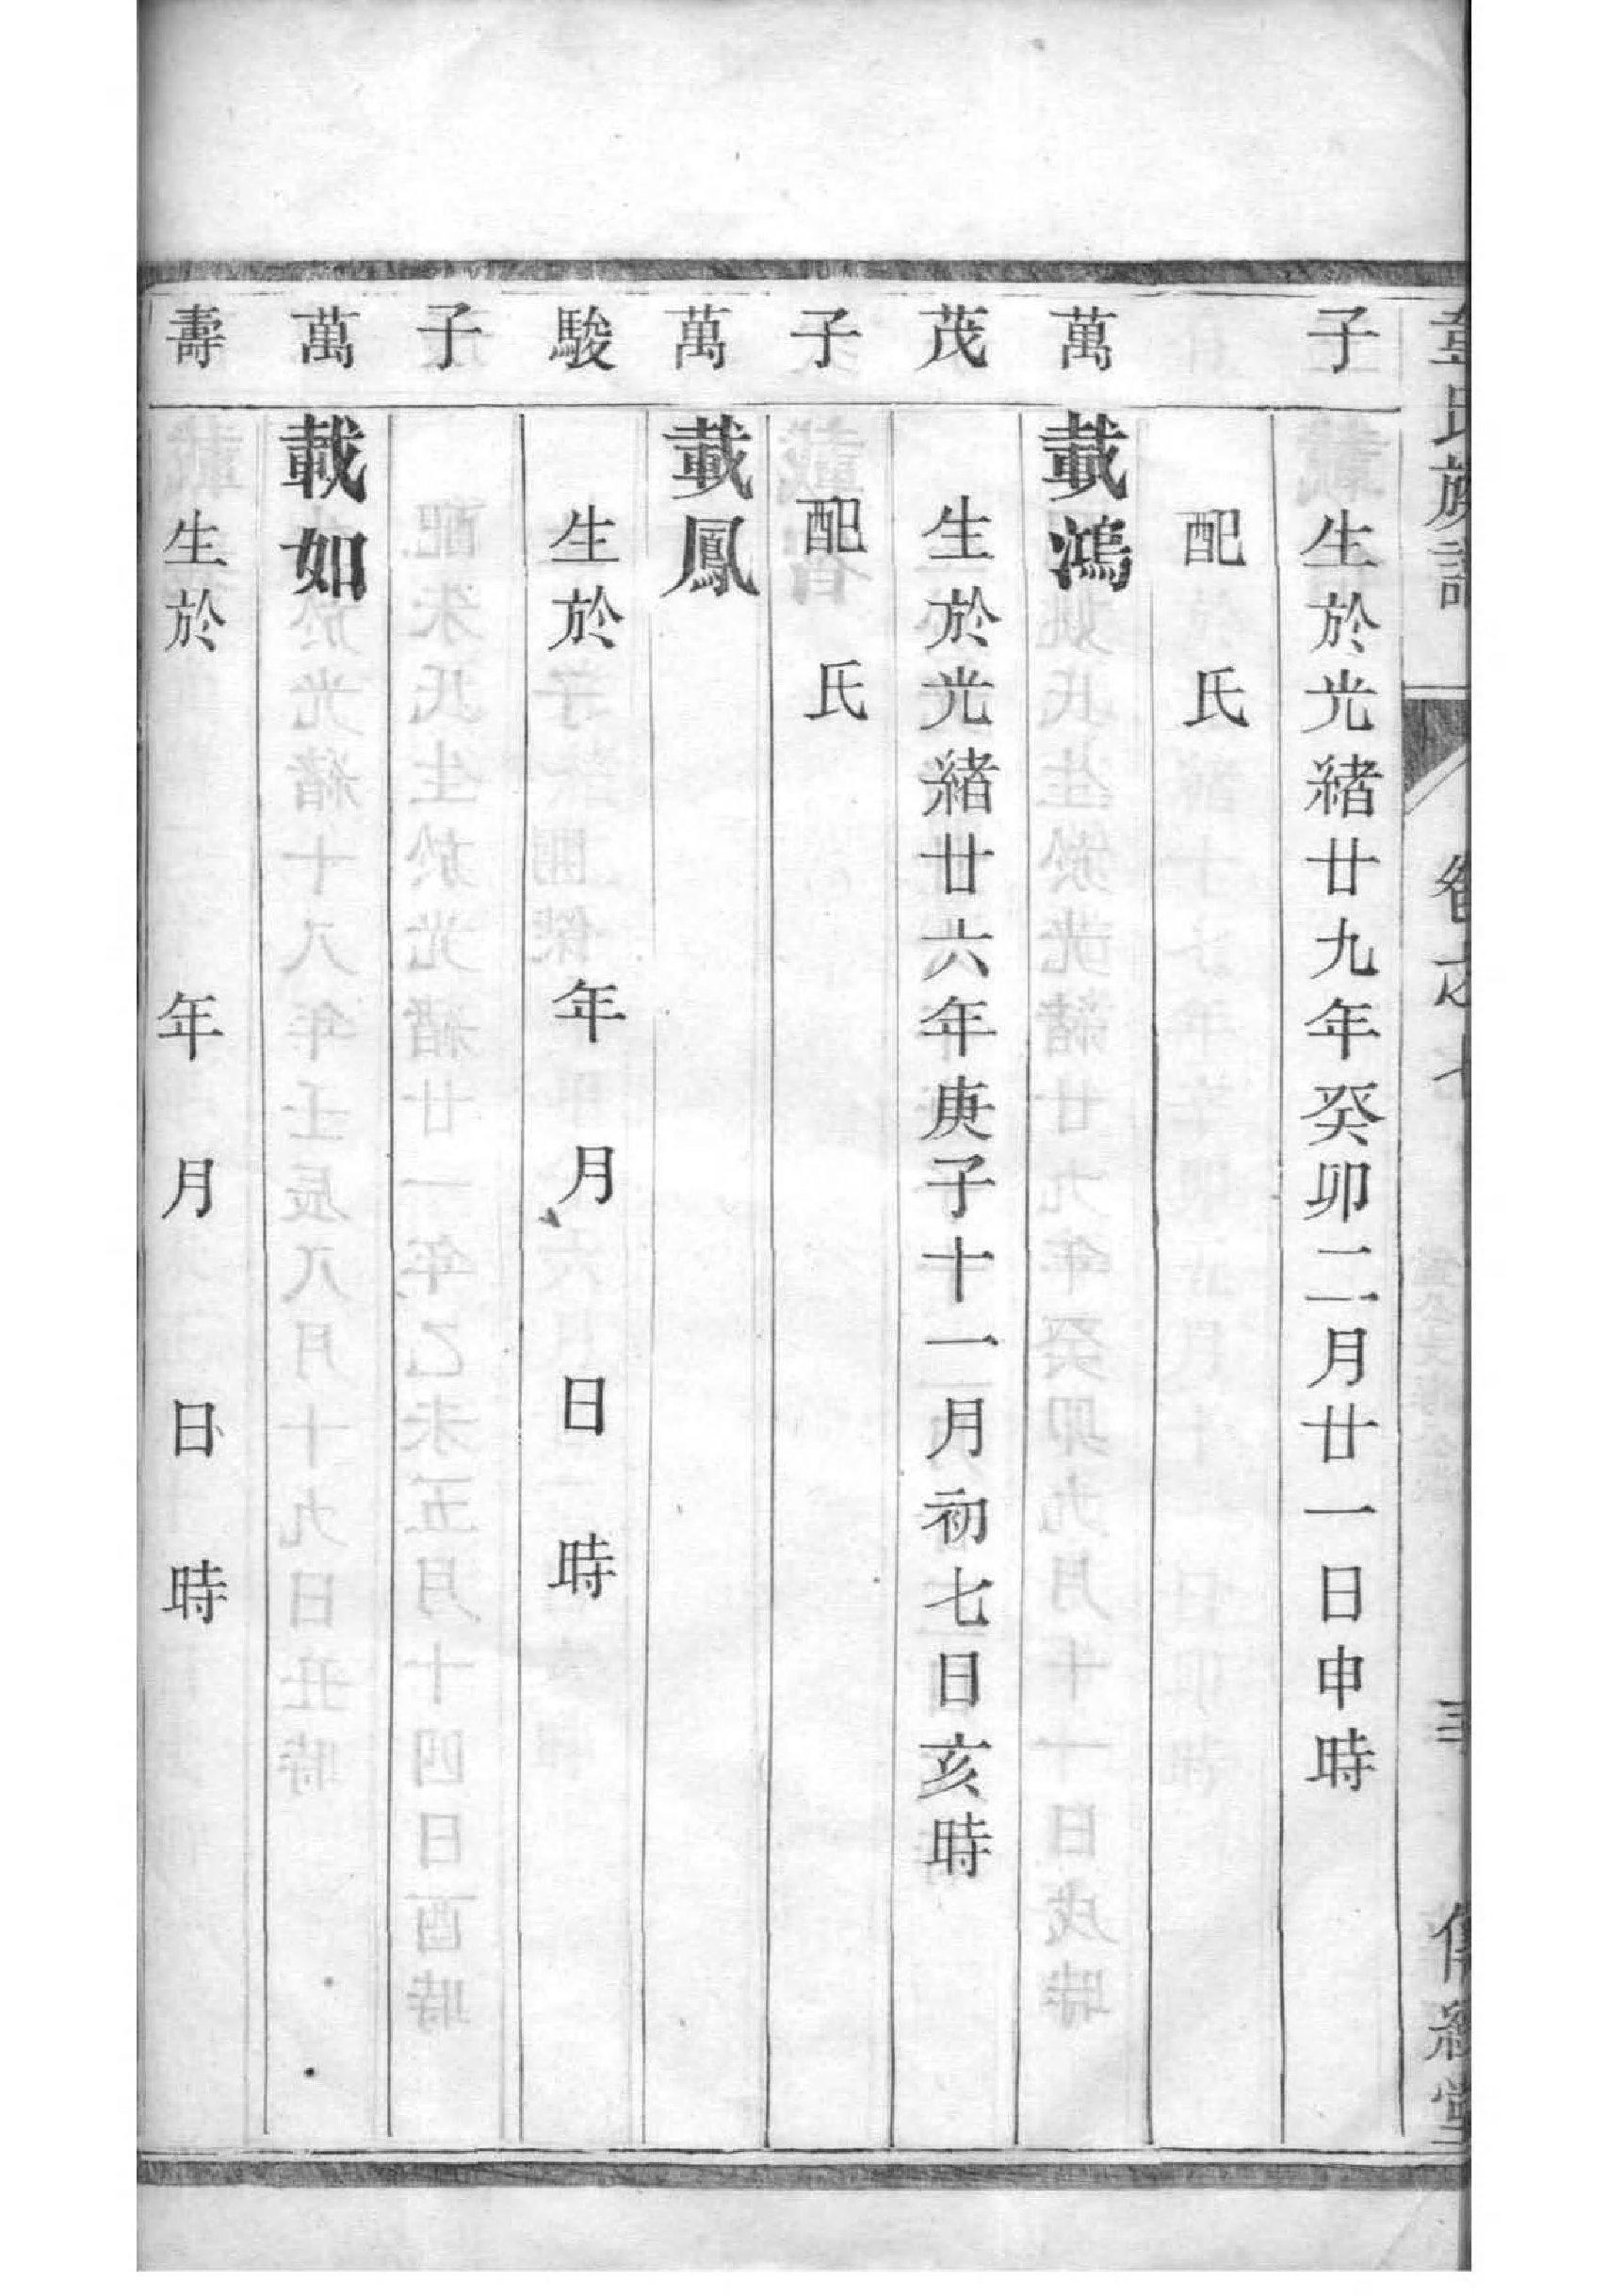 氏族譜 卷之 堂
子 生於光緒廿九年癸卯二月廿一日申時
配 氏
萬 載鴻
茂 生於光緒廿六年庚子十一月初七日亥時
子 配 氏
萬 載鳳
駿 生於 年 月 日 時
子
萬 載如
壽 生於 年 月 日 時